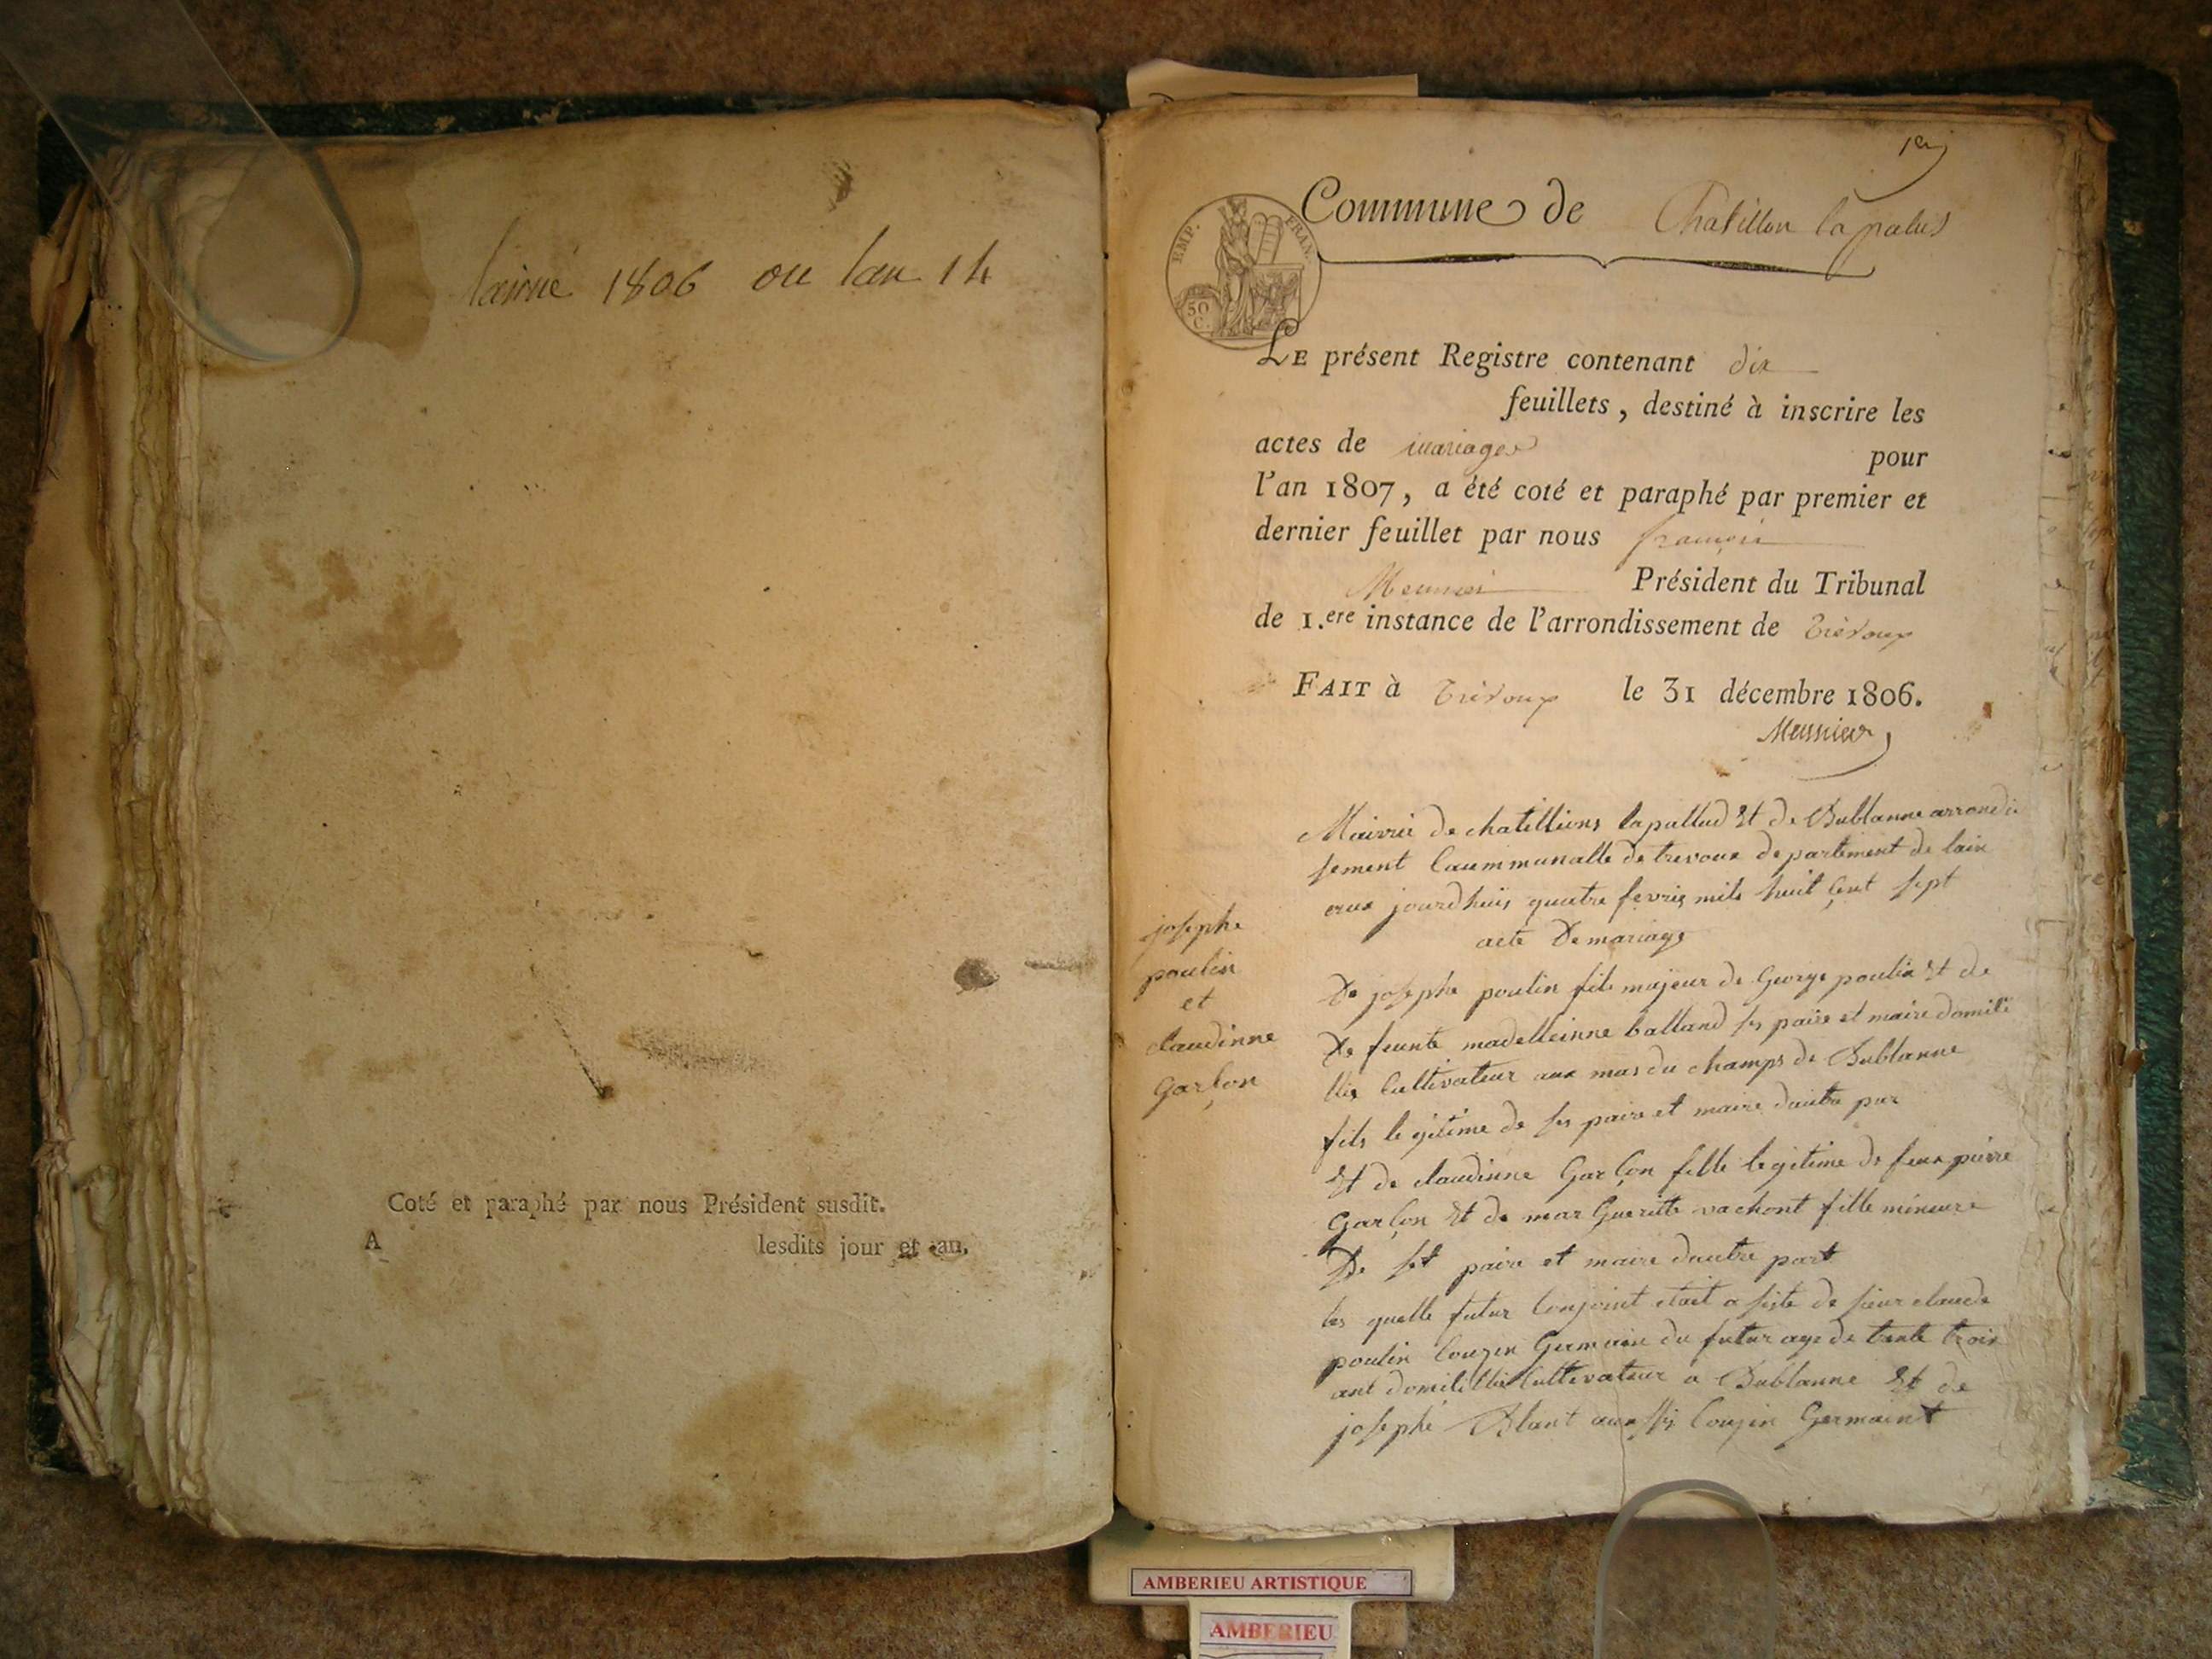 lainné 1806 ou lan 14
Coté et paraphé par nous Président susdit.
A lesdits jour et an,
1er
Commune de Chatillon la palus
EMP. FRAN.
50 C.
LE présent Registre contenant dix
feuillets, destiné à inscrire les
actes de mariages pour
l'an 1807, a été coté et paraphé par premier et
dernier feuillet par nous françois
Meunier Président du Tribunal
de 1.ere instance de l'arrondissement de Trévoux
FAIT à Trévoux le 31 décembre 1806.
Meunier
Mairie de chatillions lapallud Et de Bublanne arrondi
sement Caummunalle de trevoux departement de lain
aux jourdhuis quatre fevrie mils huit Cent sept
acte De mariage
josephe
poulin
et
claudinne
Garçon
De josephe poulin fils majeur de George poulin Et de
De feunte madelleinne balland ses paire et maire domili
llie Cultivateur aux mas du champs de Bublanne
fils legitime de ses paire et maire dautre par
Et de claudinne Garçon fille legitime de feux pierre
Garçon Et de mar Gueritte vachont fille mineure
De set paire et maire dautre part
les quelle futur Conjoint etait asiste de sieur claude
poulin Couzen Germain du futur age de trente trois
ant domicillié Cultivateur a Bublanne Et de
josephe Blant aux ssi Couzin Germaint
AMBERIEU ARTISTIQUE
AMBERIEU